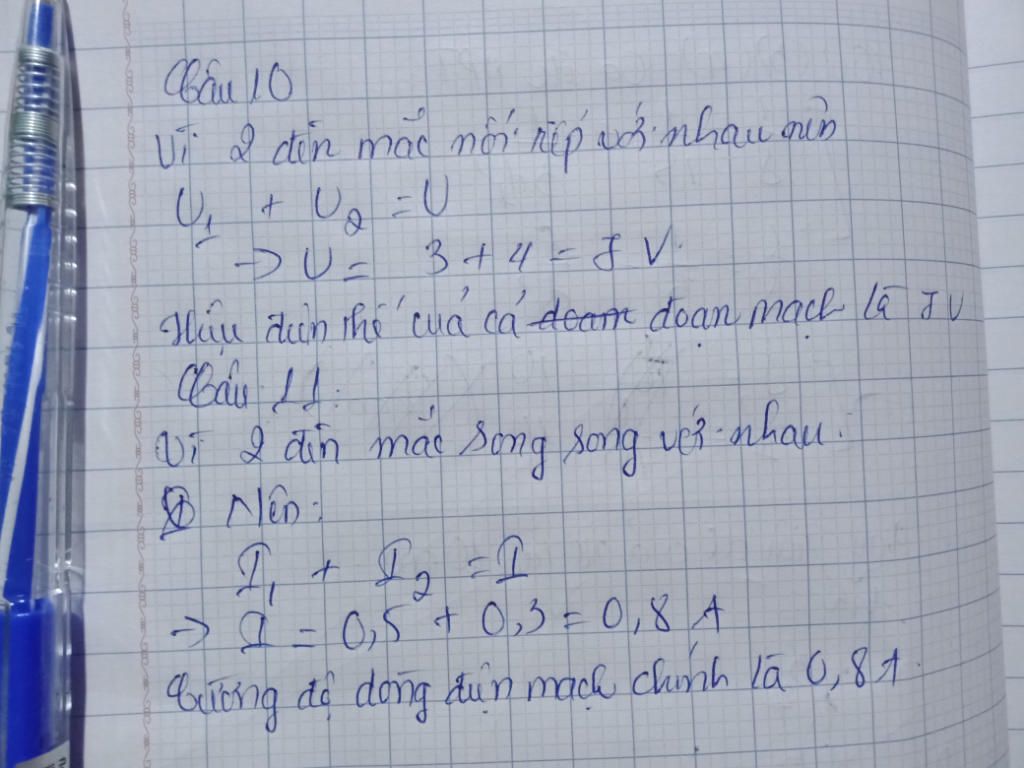 Câu 10
Vì 2 đèn mắc nối tiếp với nhau nên
U₁ + U₂ = U
→ U = 3 + 4 = 7 V.
Hiệu điện thế của cả đoạn đoạn mạch là 7 V
Câu 11:
Vì 2 đèn mắc song song với nhau.
Nên:
I₁ + I₂ = I
→ I = 0,5 + 0,3 = 0,8 A
Cường độ dòng điện mạch chính là 0,8 A.